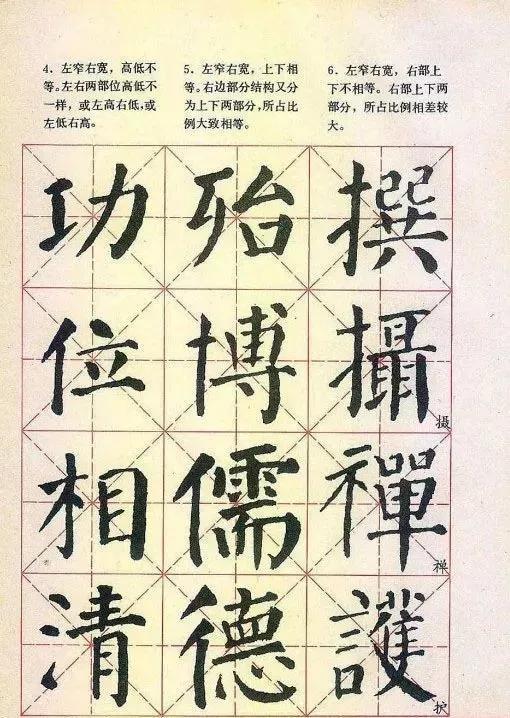 4．左窄右宽，高低不
等。左右两部位高低不
一样，或左高右低，或
左低右高。
5．左窄右宽，上下相
等。右边部分结构又分
为上下两部分，所占比
例大致相等。
6．左窄右宽，右部上
下不相等。右部上下两
部分，所占比例相差较
大。
功 殆 撰
位 博 攝 摄
相 儒 禪 禅
清 德 護 护